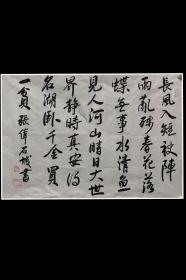 長風入短袂陣
雨亂殘春花落
蝶無事水清魚
見人河山晴日大世
界靜時真安得
名湖卧千金買
一貧 張偉石城書